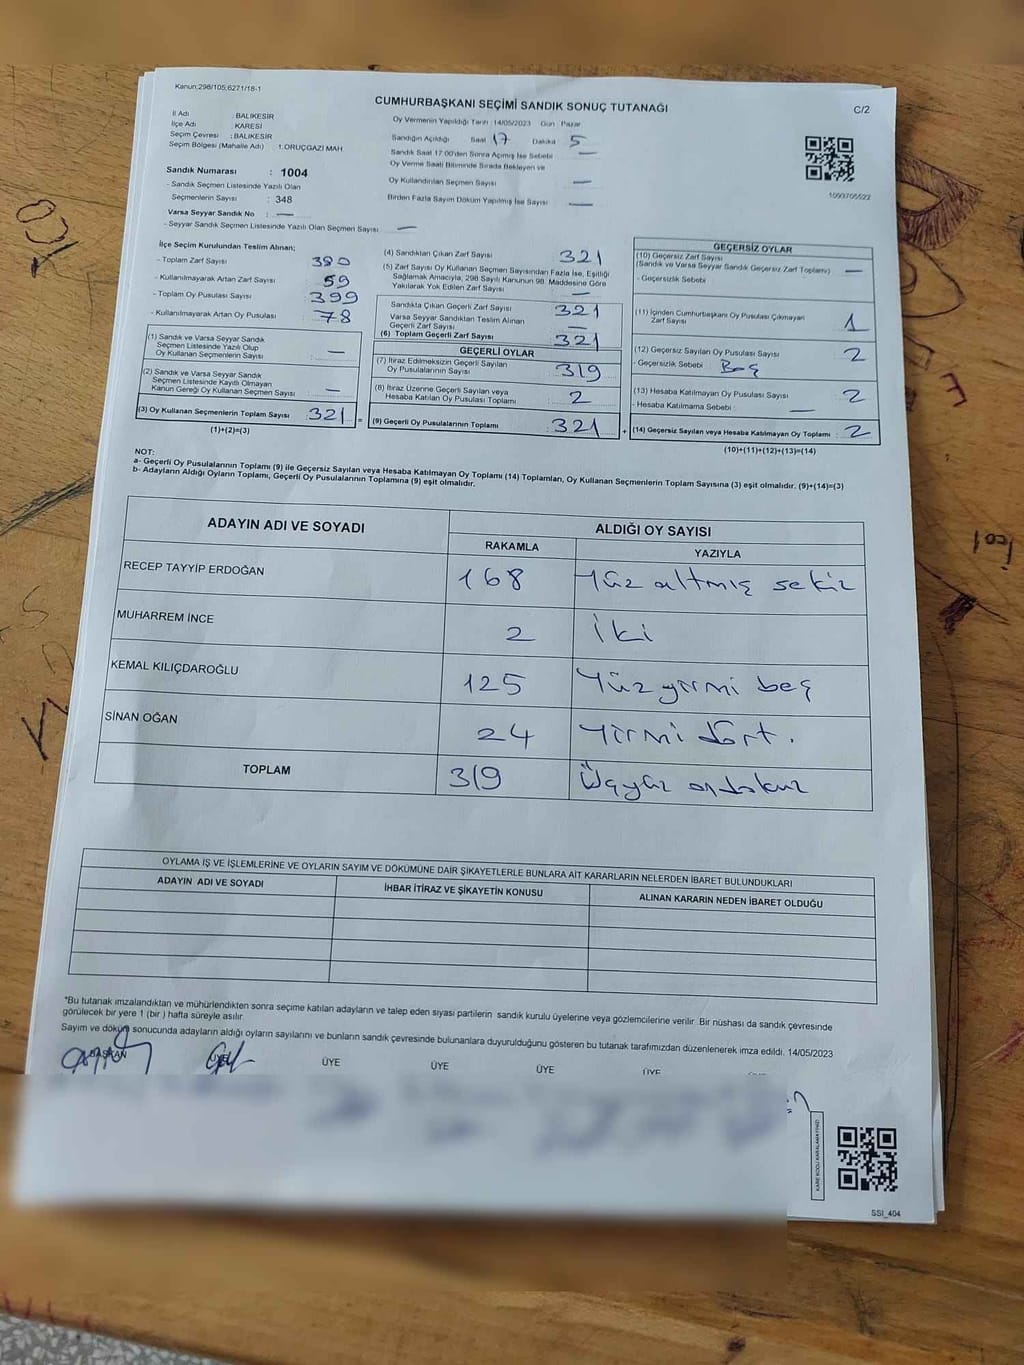 Kanun;298/105,6271/18-1
CUMHURBAŞKANI SEÇİMİ SANDIK SONUÇ TUTANAĞI
C/2
İl Adı : BALIKESİR
İlçe Adı : KARESİ
Seçim Çevresi : BALIKESİR
Seçim Bölgesi (Mahalle Adı) : 1.ORUÇGAZİ MAH
Sandık Numarası : 1004
- Sandık Seçmen Listesinde Yazılı Olan
Seçmenlerin Sayısı : 348
Varsa Seyyar Sandık No : —
- Seyyar Sandık Seçmen Listesinde Yazılı Olan Seçmen Sayısı : —
Oy Vermenin Yapıldığı Tarih :14/05/2023 Gün : Pazar
Sandığın Açıldığı Saat 17 Dakika 5
Sandık Saat 17:00'den Sonra Açılmış İse Sebebi —
Oy Verme Saati Bitiminde Sırada Bekleyen ve
Oy Kullandırılan Seçmen Sayısı —
Birden Fazla Sayım Döküm Yapılmış İse Sayısı —
1093705522
İlçe Seçim Kurulundan Teslim Alınan;
- Toplam Zarf Sayısı : 380
- Kullanılmayarak Artan Zarf Sayısı : 59
- Toplam Oy Pusulası Sayısı : 399
- Kullanılmayarak Artan Oy Pusulası : 78
(1) Sandık ve Varsa Seyyar Sandık
Seçmen Listesinde Yazılı Olup
Oy Kullanan Seçmenlerin Sayısı : —
(2) Sandık ve Varsa Seyyar Sandık
Seçmen Listesinde Kayıtlı Olmayan
Kanun Gereği Oy Kullanan Seçmen Sayısı : —
(3) Oy Kullanan Seçmenlerin Toplam Sayısı : 321
(1)+(2)=(3)
(4) Sandıktan Çıkan Zarf Sayısı : 321
(5) Zarf Sayısı Oy Kullanan Seçmen Sayısından Fazla İse, Eşitliği
Sağlamak Amacıyla, 298 Sayılı Kanunun 98. Maddesine Göre
Yakılarak Yok Edilen Zarf Sayısı : —
Sandıkta Çıkan Geçerli Zarf Sayısı : 321
Varsa Seyyar Sandıktan Teslim Alınan
Geçerli Zarf Sayısı : —
(6) Toplam Geçerli Zarf Sayısı : 321
GEÇERLİ OYLAR
(7) İtiraz Edilmeksizin Geçerli Sayılan
Oy Pusulasının Sayısı : 319
(8) İtiraz Üzerine Geçerli Sayılan veya
Hesaba Katılan Oy Pusulası Toplamı : 2
= (9) Geçerli Oy Pusulalarının Toplamı : 321
GEÇERSİZ OYLAR
(10) Geçersiz Zarf Sayısı
(Sandık ve Varsa Seyyar Sandık Geçersiz Zarf Toplamı) : —
- Geçersizlik Sebebi :
(11) İçinden Cumhurbaşkanı Oy Pusulası Çıkmayan
Zarf Sayısı : 1
(12) Geçersiz Sayılan Oy Pusulası Sayısı : 2
- Geçersizlik Sebebi : Boş
(13) Hesaba Katılmayan Oy Pusulası Sayısı : 2
- Hesaba Katılmama Sebebi : —
+ (14) Geçersiz Sayılan veya Hesaba Katılmayan Oy Toplamı : 2
(10)+(11)+(12)+(13)=(14)
NOT:
a- Geçerli Oy Pusulalarının Toplamı (9) ile Geçersiz Sayılan veya Hesaba Katılmayan Oy Toplamı (14) Toplamları, Oy Kullanan Seçmenlerin Toplam Sayısına (3) eşit olmalıdır. (9)+(14)=(3)
b- Adayların Aldığı Oyların Toplamı, Geçerli Oy Pusulalarının Toplamına (9) eşit olmalıdır.
ADAYIN ADI VE SOYADI
ALDIĞI OY SAYISI
RAKAMLA YAZIYLA
RECEP TAYYİP ERDOĞAN 168 Yüz altmış sekiz
MUHARREM İNCE 2 İki
KEMAL KILIÇDAROĞLU 125 Yüz yirmi beş
SİNAN OĞAN 24 Yirmi dört.
TOPLAM 319 Üçyüz ondokuz
OYLAMA İŞ VE İŞLEMLERİNE VE OYLARIN SAYIM VE DÖKÜMÜNE DAİR ŞİKAYETLERLE BUNLARA AİT KARARLARIN NELERDEN İBARET BULUNDUKLARI
ADAYIN ADI VE SOYADI İHBAR İTİRAZ VE ŞİKAYETİN KONUSU ALINAN KARARIN NEDEN İBARET OLDUĞU
*Bu tutanak imzalandıktan ve mühürlendikten sonra seçime katılan adayların ve talep eden siyasi partilerin sandık kurulu üyelerine veya gözlemcilerine verilir. Bir nüshası da sandık çevresinde
görülecek bir yere 1 (bir ) hafta süreyle asılır.
Sayım ve döküm sonucunda adayların aldığı oyların sayılarını ve bunların sandık çevresinde bulunanlara duyurulduğunu gösteren bu tutanak tarafımızdan düzenlenerek imza edildi. 14/05/2023
BAŞKAN ÜYE ÜYE ÜYE ÜYE ÜYE
KARE KODU KARALAMAYINIZ!
SSİ_404